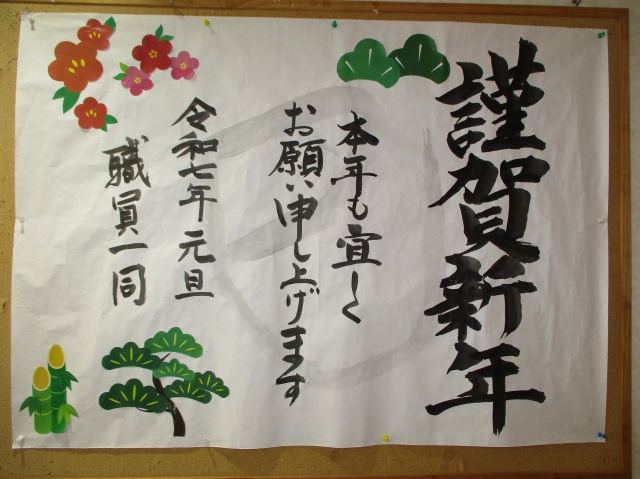 謹賀新年
本年も宜しく
お願い申し上げます
令和七年元旦
職員一同